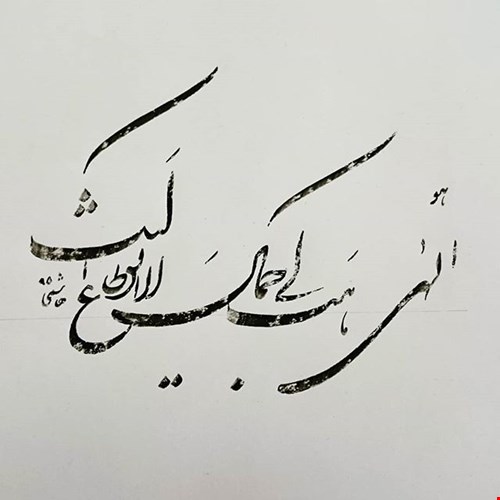 هو
الهی هب لی کمال الانقطاع الیک